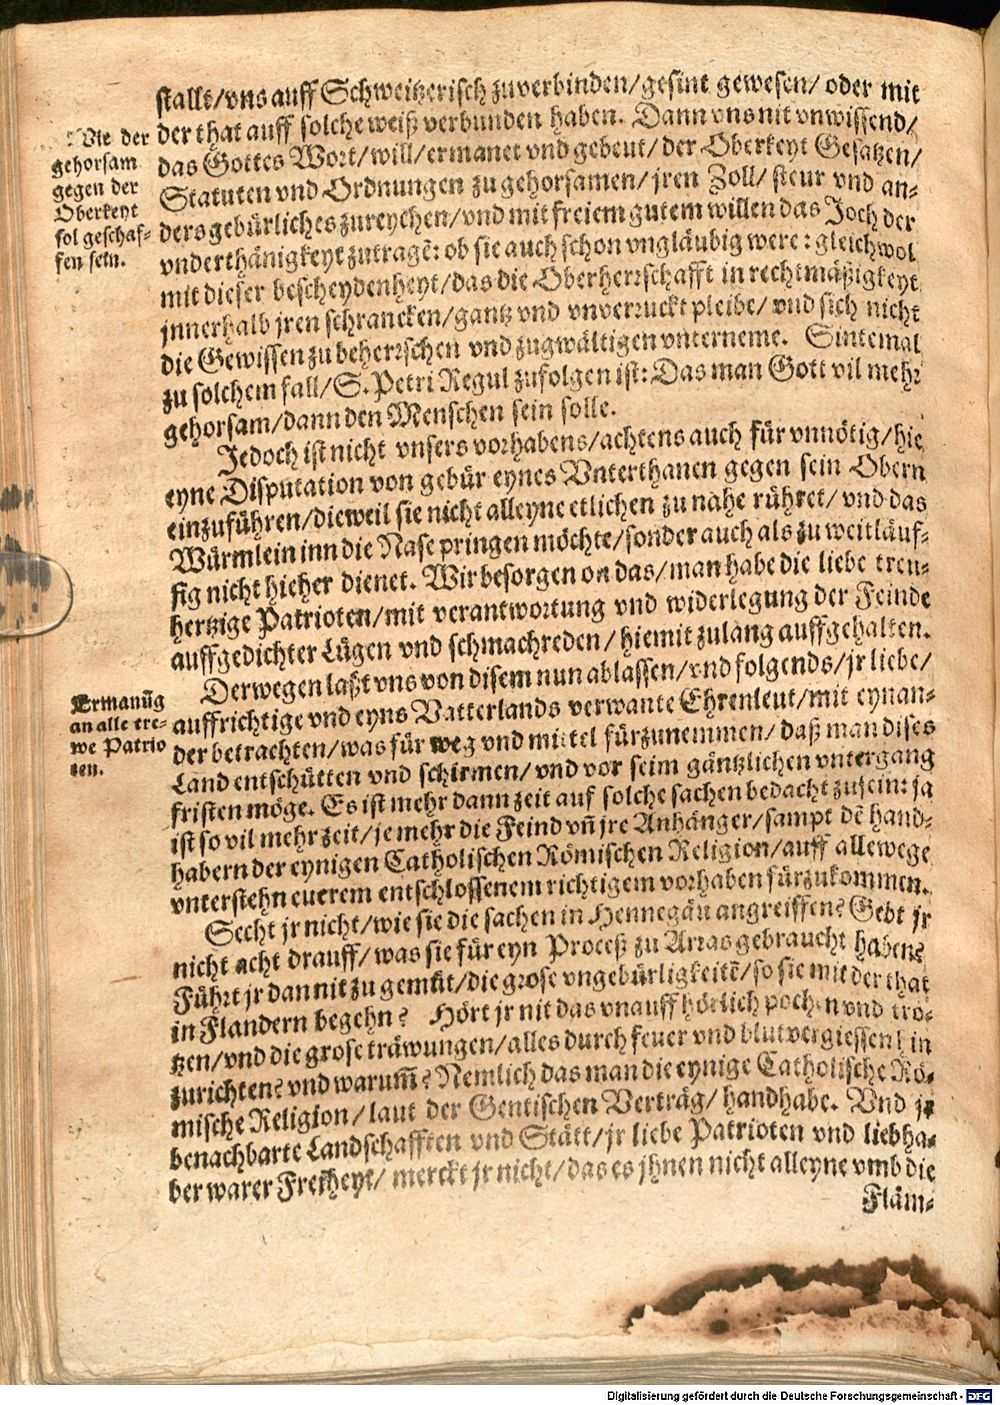 stallt/vns auff Schweitzerisch zuverbinden/gesint gewesen/ oder mit
der that auff solche weiß verbunden haben. Dann vns nit vnwissend/
das Gottes Wort/will/ermanet vnd gebeut/der Oberkeyt Gesatzen/
Statuten vnd Ordnungen zu gehorsamen/ jren Zoll/ steur vnd an-
ders gebürliches zureychen/vnd mit freiem gutem willen das Joch der
vnderthänigkeyt zutragē: ob sie auch schon vngläubig were: gleichwol
mit dieser bescheydenheyt/das die Oberherrschafft in rechtmäßigkeyt
jnnerhalb jren schrancken/gantz vnd vnverruckt pleibe/ vnd sich nicht
die Gewissen zu beherrschen vnd zugwältigen vnterneme. Sintemal
zu solchem fall/S. Petri Regul zufolgen ist: Das man Gott vil mehr
gehorsam/dann den Menschen sein solle.
Wie der
gehorsam
gegen der
Oberkeyt
sol geschaf-
fen sein.
Jedoch ist nicht vnsers vorhabens/achtens auch für vnnötig/hie
eyne Disputation von gebür eynes Vnterthanen gegen sein Obern
einzuführen/dieweil sie nicht alleyne etlichen zu nahe rühret/ vnd das
Würmlein inn die Nase pringen möchte/sonder auch als zu weitläuf-
fig nicht hieher dienet. Wir besorgen on das/man habe die liebe treu-
hertzige Patrioten/mit verantwortung vnd widerlegung der Feinde
auffgedichter Lügen vnd schmachreden/ hiemit zulang auffgehalten.
Derwegen laßt vns von disem nun ablassen/vnd folgends/jr liebe/
auffrichtige vnd eyns Vatterlands verwante Ehrenleut/mit eynan-
der betrachten/was für weg vnd mittel fürzunemmen/ daß man dises
Land entschütten vnd schirmen/vnd vor seim gäntzlichen vntergang
fristen möge. Es ist mehr dann zeit auf solche sachen bedacht zusein: ja
ist so vil mehr zeit/je mehr die Feind vn̄ jre Anhänger/sampt dē hand-
habern der eynigen Catholischen Römischen Religion/auff allewege
vnterstehn euerem entschlossenem richtigem vorhaben fürzukommen.
Ermanūg
an alle tre-
we Patrio
ten.
Secht jr nicht/wie sie die sachen in Hennegäu angreiffen? Gebt jr
nicht acht drauff/ was sie für eyn Proceß zu Arras gebraucht haben?
Führt jr dan nit zu gemüt/die grose vngebürligkeitē/so sie mit der that
in Flandern begehn? Hört jr nit das vnauffhörlich pochen vnd tro-
tzen/vnd die grose träwungen/alles durch feuer vnd blutvergiessen hin
zurichten? vnd warum̄? Nemlich das man die eynige Catholische Rö-
mische Religion/laut der Gentischen Verträg/ handhabe. Vnd jr
benachbarte Landschafften vnd Stätt/jr liebe Patrioten vnd liebha-
ber warer Freiheyt/ merckt jr nicht/das es jhnen nicht alleyne vmb die
Fläm-
Digitalisierung gefördert durch die Deutsche Forschungsgemeinschaft - DFG